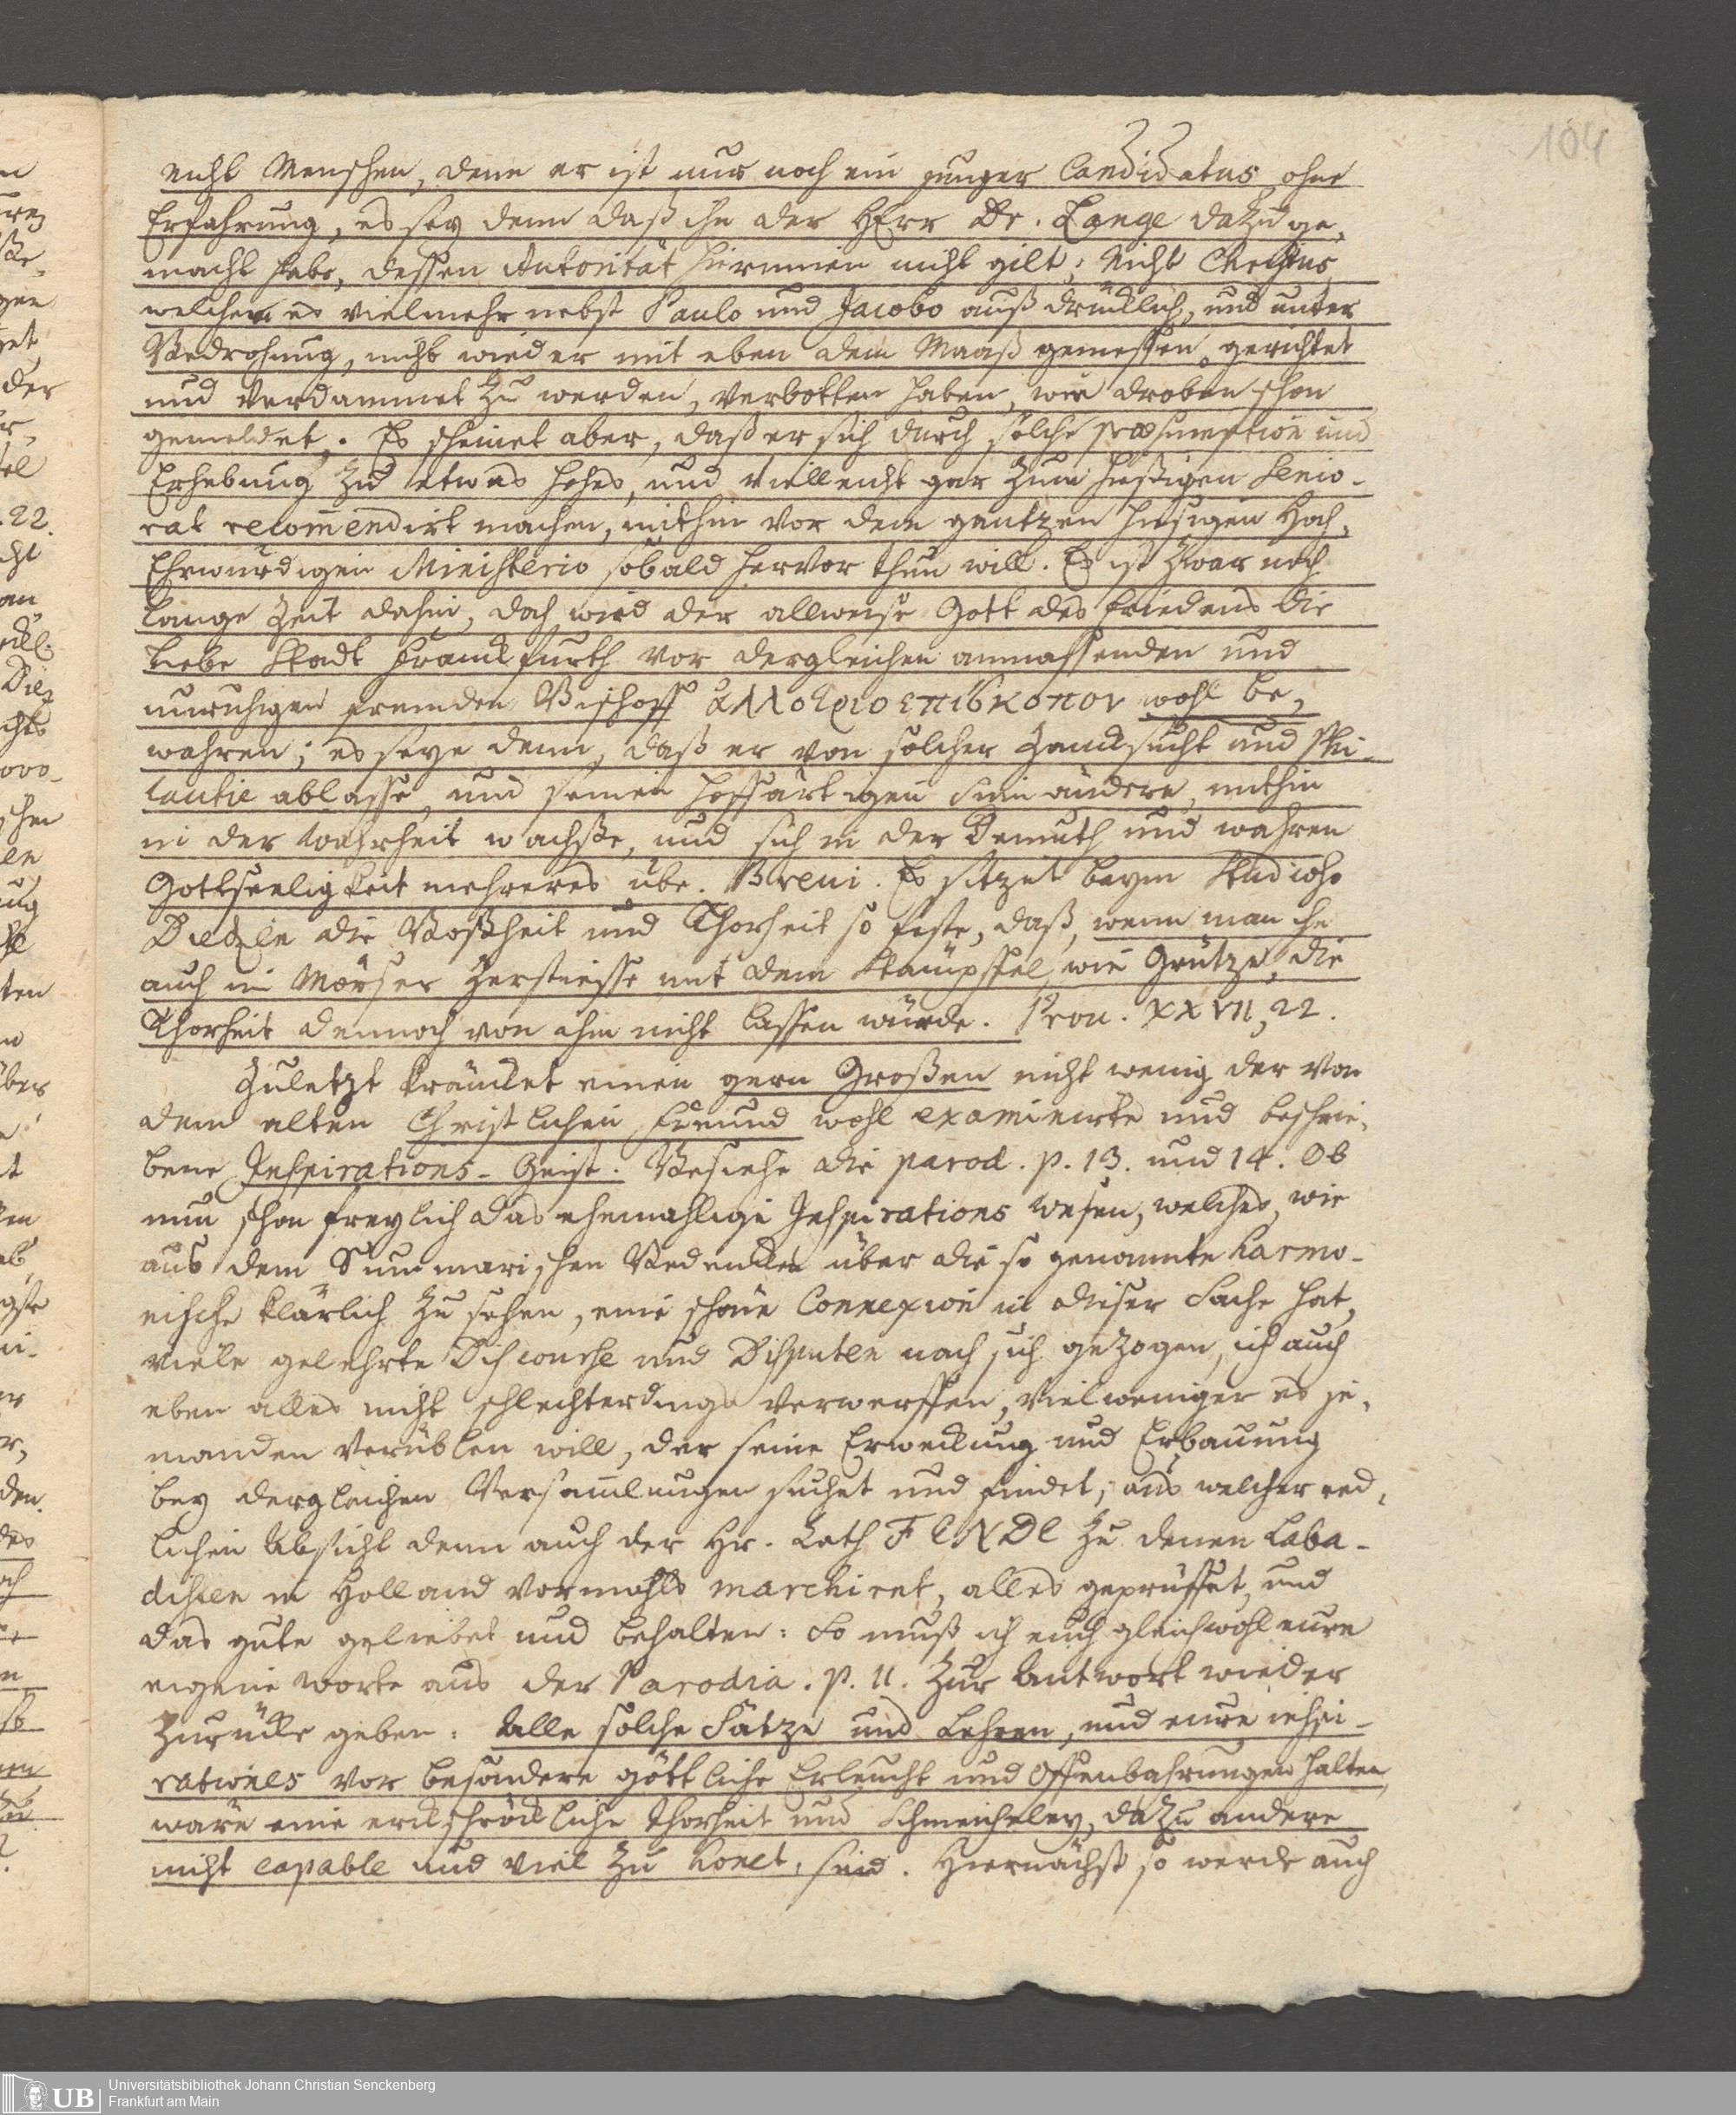 104
nicht Menschen, denn er ist nur noch ein junger Candidatus ohne
Erfahrung, es sey denn daß ihn der HErr Dr. Lange dazu ge-
macht habe, dessen Autorität hierinnen nicht gilt; nicht Christus
welcher es vielmehr nebst Paulo und Jacobo außdrücklich, und unter
Bedrohung, nicht wieder mit eben dem Maaß gemessen, gerichtet
und verdammet zu werden, verbotten haben, wie droben schon
gemeldet. Es scheinet aber, daß er sich durch solche præsumption und
Erhebung zu etwas hohes, und vielleicht gar zum hießigen Senio-
rat recommendirt machen, mithin vor dem gantzen hiesigen Hoch-
Ehrwürdigen Ministerio sobald hervor thun will. Es ist zwar noch
lange Zeit dahin, doch wird der allweise Gott des Friedens die
liebe Stadt Franckfurth vor dergleichen anmassenden und
unruhigen fremden Bischoff αλλοτριοεπισκοπον wohl be-
wahren; es seye denn, daß er von solcher Zancksucht und Phi-
lautie ablasse, und seinen hoffärtigen Sinn ändere, mithin
in der Wahrheit wachse, und sich in der Demuth und wahren
Gottseeligkeit mehreres übe. Breui. Es sitzet beym Studioso
Dietzeln die Boßheit und Thorheit so feste, daß, wenn man ihn
auch im Mörser zerstiesse mit dem Stämpffel, wie Grütze, die
Thorheit dennoch von ihm nicht lassen würde. Prou. XXVII, 22.
Zuletzt kräncket einen gern Großen nicht wenig der von
dem alten Christlichen Freund wohl examinirte und beschrie-
bene Inspirations-Geist. Besiehe die parod. p. 13. und 14. Ob
nun schon freylich das ehemahlige Inspirations Wesen, welches, wie
aus dem Summarischen Bedencken über die so genannte Harmo-
nische klärlich zu sehen, eine schöne Connexion in dieser Sache hat,
viele gelehrte Discourse und Disputen nach sich gezogen, ich auch
eben alles nicht schlechterdings verwerffen, vielweniger es je-
manden verüblen will, der seine Erweckung und Erbauung
bey dergleichen Versammlungen suchet und findet; aus welcher red-
lichen Absicht denn auch der Hr. Rath FENDE zu denen Laba-
disten in Holland vormahls marchiret, alles geprüffet, und
das gute geliebet und behalten: So muß ich euch gleichwohl eure
eigene Worte aus der Parodia. p. 11. zur Antwort wieder
zurücke geben: Alle solche Sätze und Lehren, und eure inspi-
rationes vor besondere göttliche Erleucht und Offenbahrungen halten,
wäre eine erschröckliche Thorheit und Schmeicheley, dazu andere
nicht capable und viel zu honet, sind. Hiernächst so werde auch
UB
Universitätsbibliothek Johann Christian Senckenberg
Frankfurt am Main